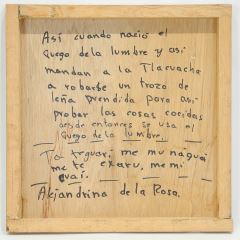 Así cuando nació el
Quego de la lumbre y asi
mandan a la Tlacuacha
a robarse un trozo de
leña prendida para asi
probar las cosas cocidas
desde entonces se usa el
Quego de la lumbre.
me mu
me te me mi
Alejandrina de la Rosa.